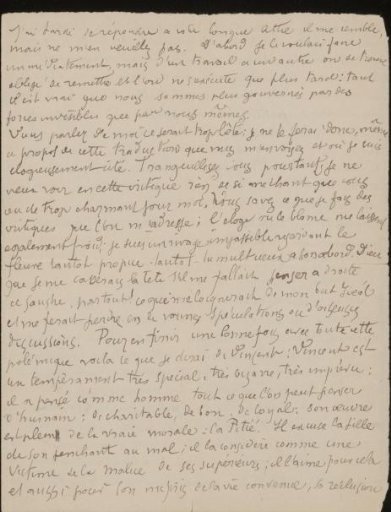 J'ai tardé de répondre a votre longue lettre il me semble,
mais ne m'en veuillez pas. D'abord je le voulais faire
immédiatement, mais d'un travail a un autre on se trouve
obligé de remettre et l'on n'exécute que plus tard: tant
il est vrai que nous sommes plus gouvernés par des
forces invisibles que par nous mêmes.
Vous parler de moi ce serait trop bête: je ne le ferai donc, même
a propos de cette traduction que vous m'envoyez et où je suis
élogieusement cité. Tranquillisez vous pourtant, je ne
veux voir en cette critique rien et si méchant que vous
ou de trop charmant pour moi, vous savez ce que je fais des
critiques que l'on m'adresse; l'éloge ou le blâme me laissent
également froid; je suis un sage impassible regardant le
fleuve tantôt propre tantôt tumultueux a bon bord. Dieu
que je me casserais la tête s'il me fallait penser a droite
et gauche, partout ce qui m'éloignerait de mon but idéal
et me ferait perdre en de vaines spéculations ou d'oiseuses
discussions. Pour en finir une bonne fois avec toute cette
polémique voilà ce que je dirai de Vincent: Vincent est
un tempérament très spécial, très bizarre, très imprévu;
il a pensé comme homme tout ce que l'on peut penser
d'humain: de charitable, de bon, de loyal: son œuvre
est pleine de la vraie morale: la Pitié. Il excuse la fille
de son penchant au mal; il la considère comme une
victime de la malice de ses supérieurs; il l'aime pour cela
et aussi pour son mépris de la vie convenue, la réclusion